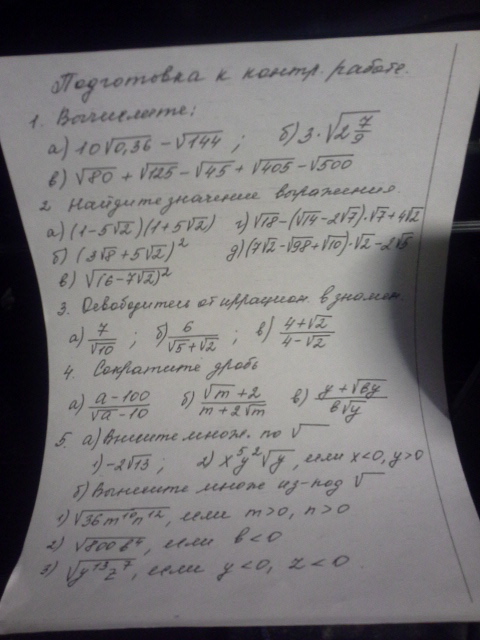 Подготовка к контр. работе.
1. Вычислите:
а) 10√0,36 − √144 ; б) 3·√(2 7/9)
в) √80 + √125 − √45 + √405 − √500
2 Найдите значение выражения.
а) (1−5√2)(1+5√2) г) √18−(√14−2√7)·√7+4√2
б) (3√8+5√2)² д) (7√2−√98+√10)·√2−2√5
в) √(6−7√2)²
3. Освободитесь от иррацион. в знамен.
а) 7/√10 ; б) 6/(√5+√2) ; в) (4+√2)/(4−√2)
4. Сократите дробь
а) (а−100)/(√а−10) б) (√m+2)/(m+2√m) в) (y+√вy)/(в√y)
5. а) Внесите множ. по √
1) −2√13 ; 2) x⁵y²√y, если x<0, y>0
б) Вынесите множ из-под √
1) √(36m¹⁰n¹²), если m>0, n>0
2) √(800в⁴), если в<0
3) √(y¹³z⁷), если y<0, z<0.